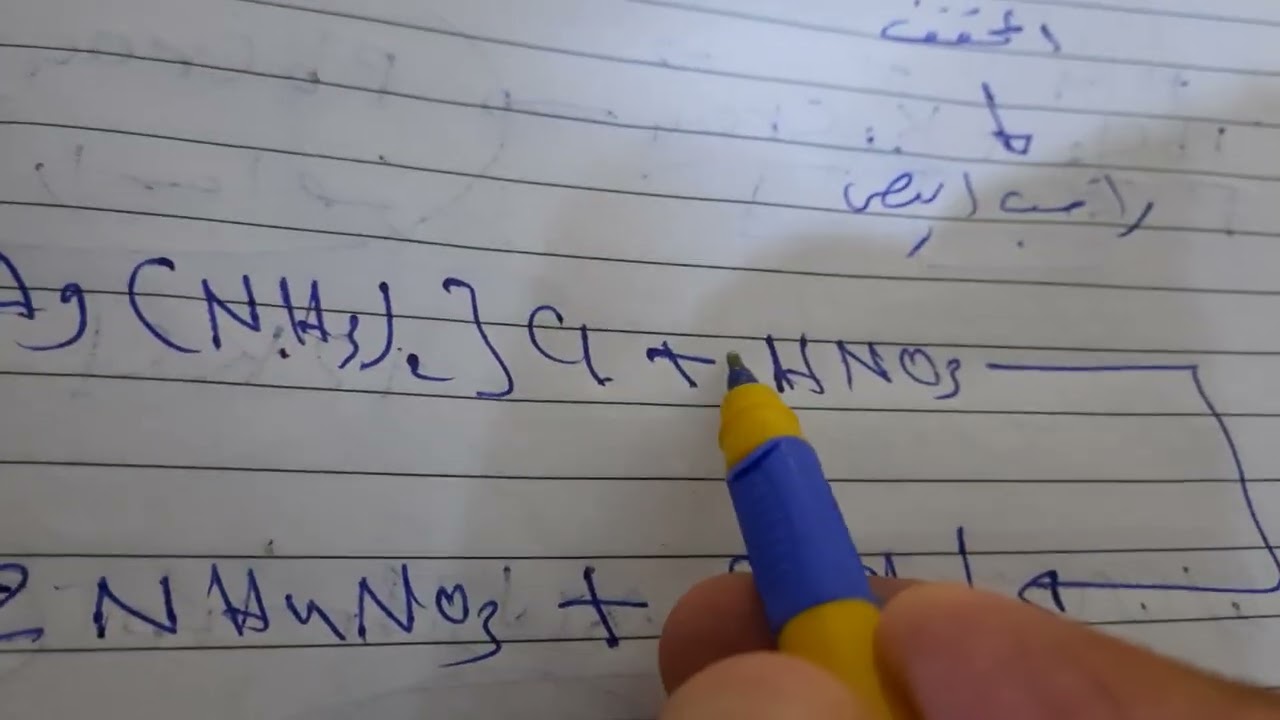 المخفف
راسب ابيض
Ag(NH3)2]Cl + HNO3
2 NH4NO3 +